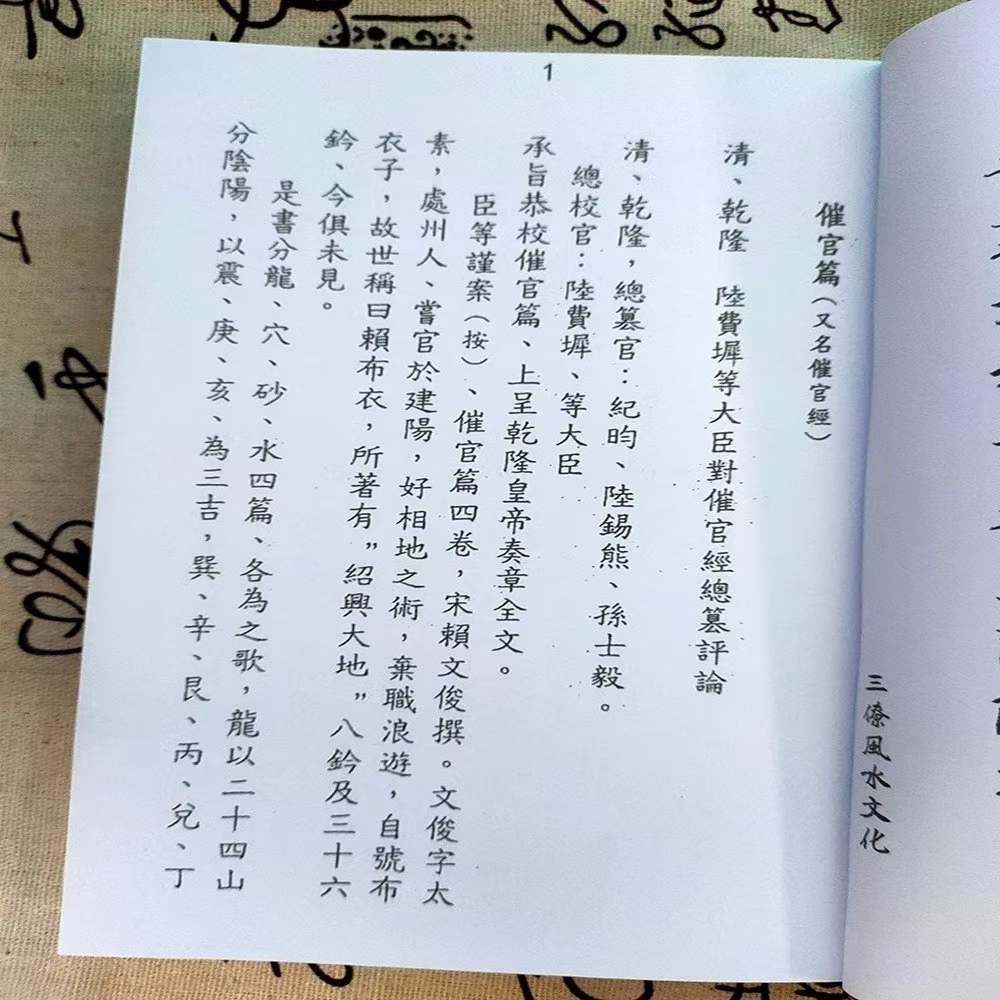 1
催官篇（又名催官經）
清、乾隆 陸費墀等大臣對催官經總篡評論
清、乾隆，總篡官：紀昀、陸錫熊、孫士毅。
總校官：陸費墀、等大臣
承旨恭校催官篇、上呈乾隆皇帝奏章全文。
臣等謹案（按）、催官篇四卷，宋賴文俊撰。文俊字太
素，處州人、嘗官於建陽，好相地之術，棄職浪遊，自號布
衣子，故世稱曰賴布衣，所著有”紹興大地”八鈐及三十六
鈐、今俱未見。
是書分龍、穴、砂、水四篇、各為之歌，龍以二十四山
分陰陽，以震、庚、亥、為三吉，巽、辛、艮、丙、兌、丁
三僚風水文化